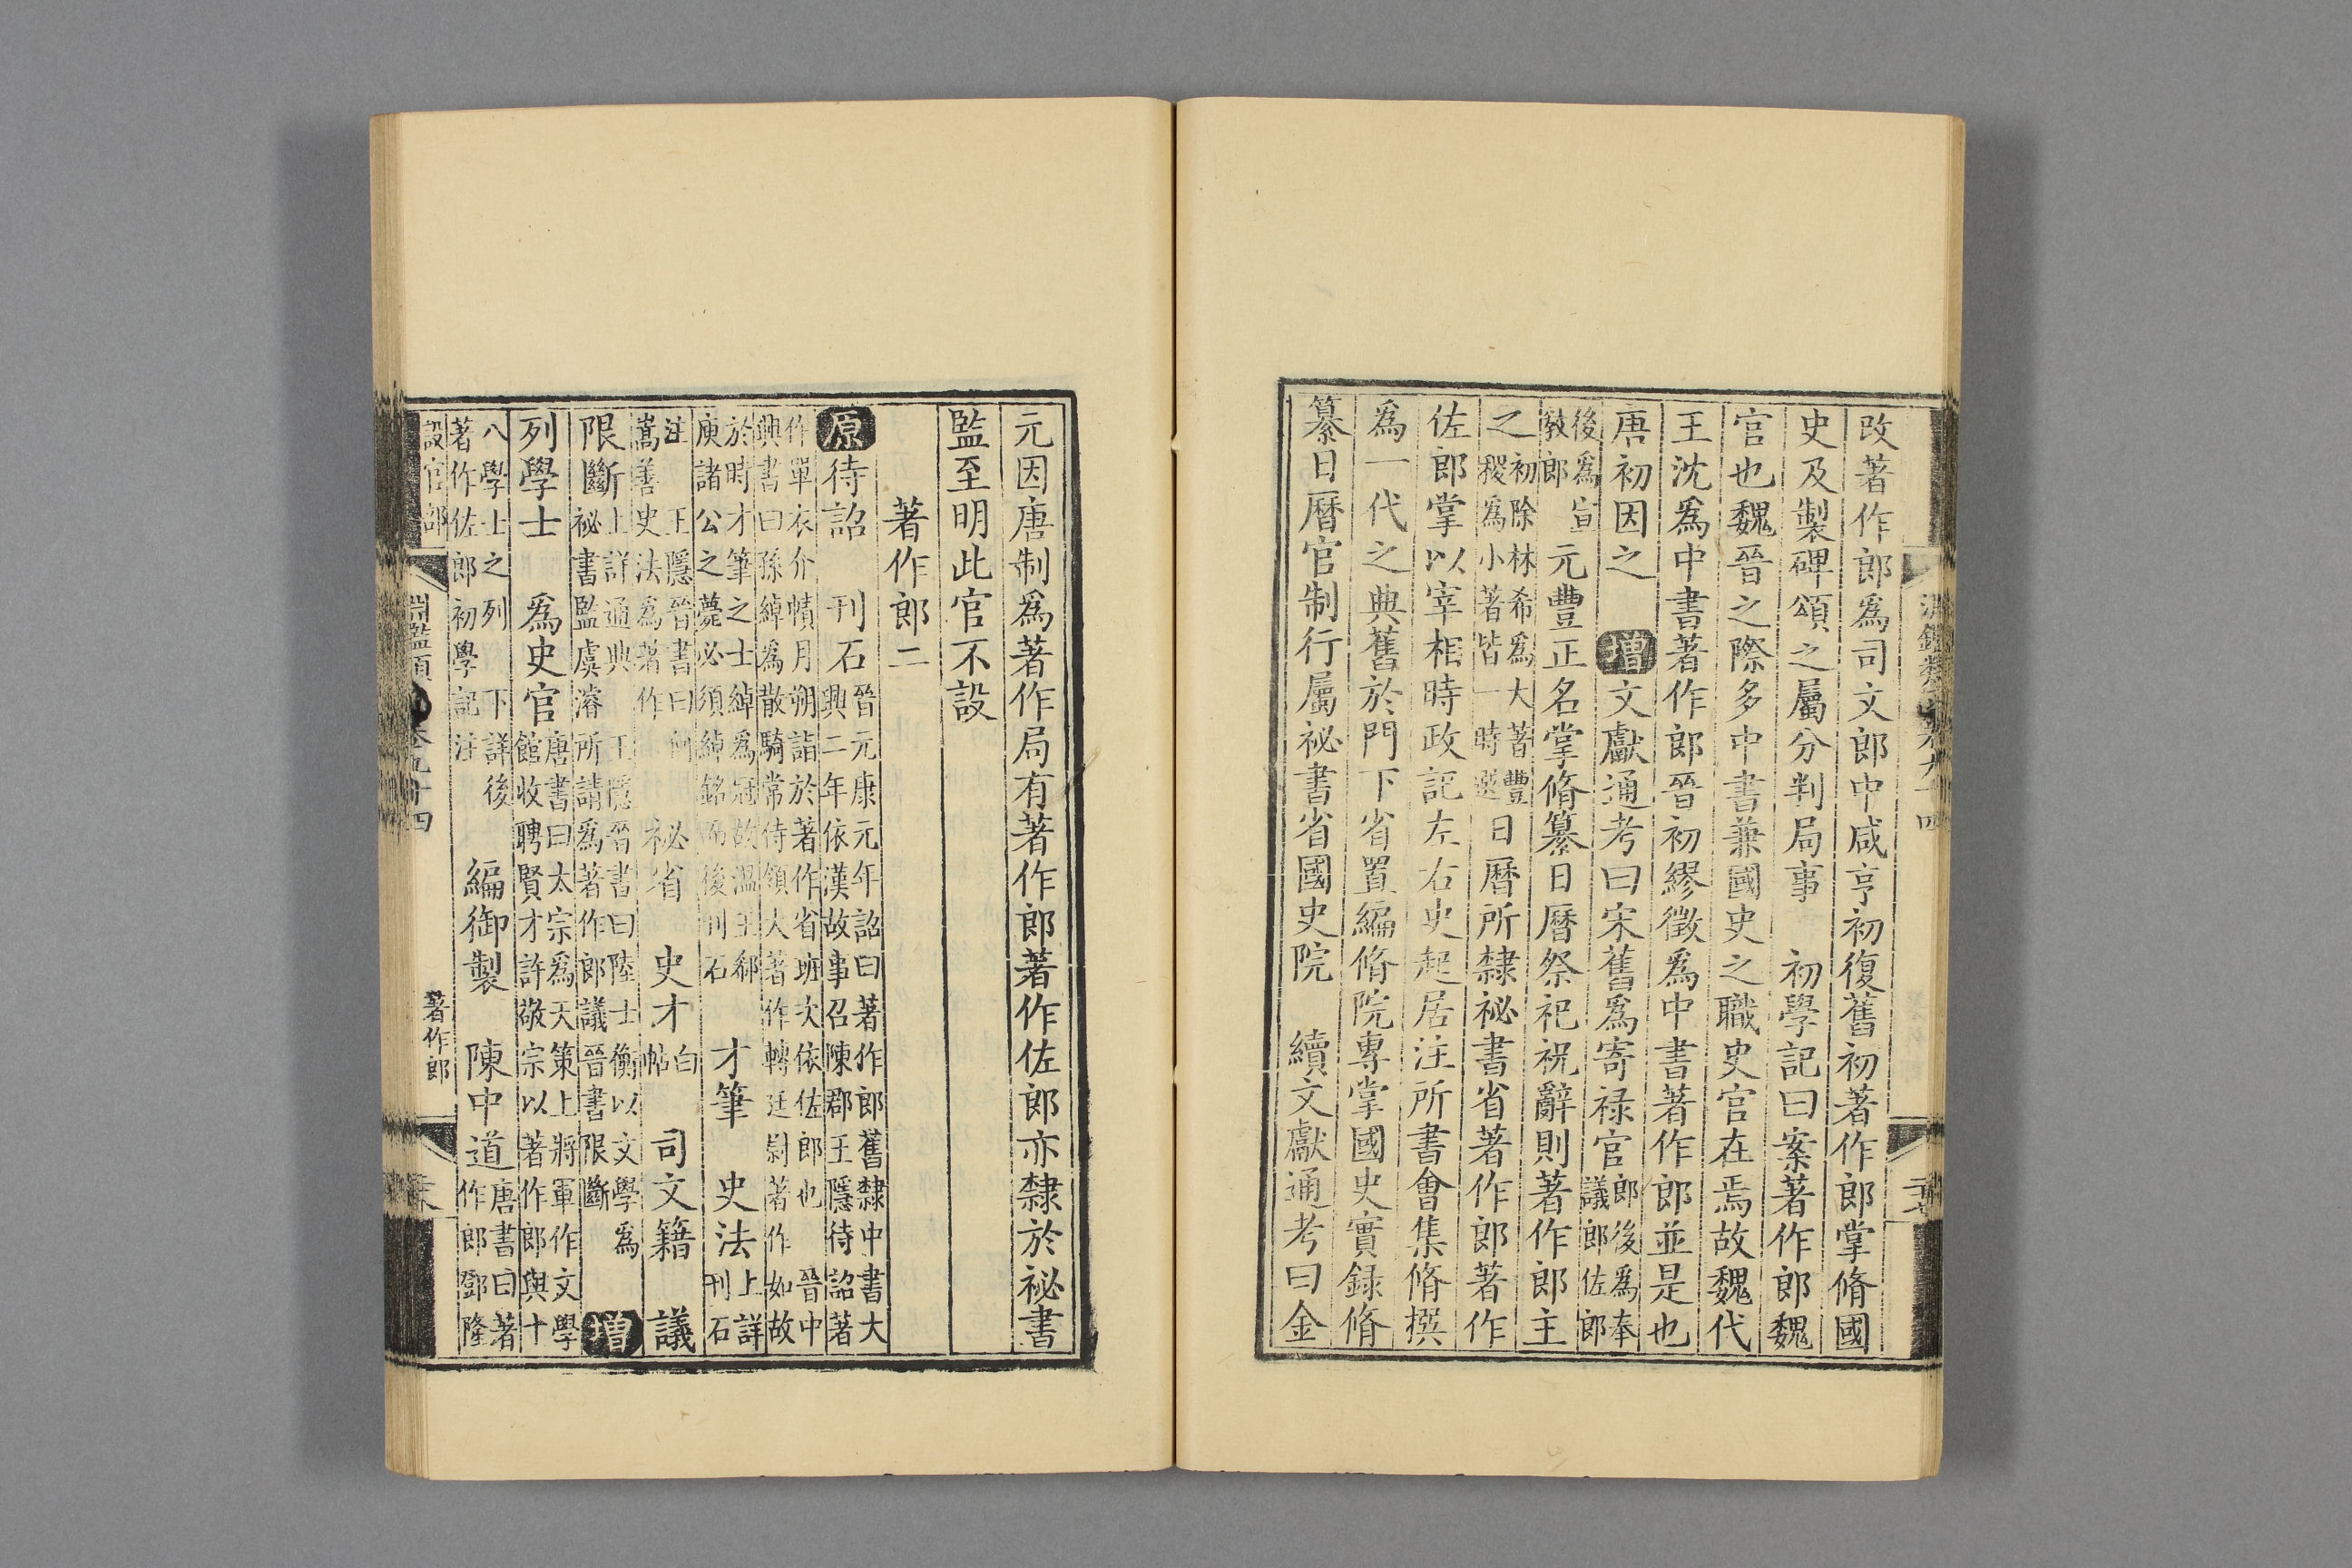 改著作郎爲司文郎中咸亨初復舊初著作郎掌脩國
史及製碑頌之屬分判局事　初學記曰案著作郎魏
官也魏晉之際多中書兼國史之職史官在焉故魏代
王沈爲中書著作郎晉初繆徵爲中書著作郎並是也
唐初因之　增文獻通考曰宋舊爲寄禄官郎後爲奉議郎佐郎
後爲宣敎郎　元豐正名掌脩纂日曆祭祀祝辭則著作郎主
之初除林希爲大著豐稷爲小著皆一時選日曆所隸祕書省著作郎著作
佐郎掌以宰相時政記左右史起居注所書會集脩撰
爲一代之典舊於門下省置編脩院專掌國史實録脩
纂日曆官制行屬祕書省國史院　續文獻通考曰金
元因唐制爲著作局有著作郎著作佐郎亦隸於祕書
監至明此官不設
著作郎二
原待詔　刊石晉元康元年詔曰著作郎舊隸中書大興二年依漢故事召陳郡王隱待詔著
作單衣介幘月朔詣於著作省班次依佐郎也　晉中興書曰孫綽爲散騎常侍領大著作轉廷尉著作如故
於時才筆之士綽爲冠故溫王郗庾諸公之薨必須綽銘而後刊石　才筆　史法上詳刊石
注　王隱晉書曰何嵩善史法爲著作　祕省　史才白帖　司文籍　議
限斷上詳通典　王隱晉書曰陸士衡以文學爲祕書監虞濬所請爲著作郎議晉書限斷　增
列學士　爲史官唐書曰太宗爲天策上將軍作文學館收聘賢才許敬宗以著作郎與十
八學士之列　下詳後著作佐郎初學記注　編御製　陳中道唐書曰著作郎鄧隆
設官部
淵鑑類函　卷九十四
著作郎